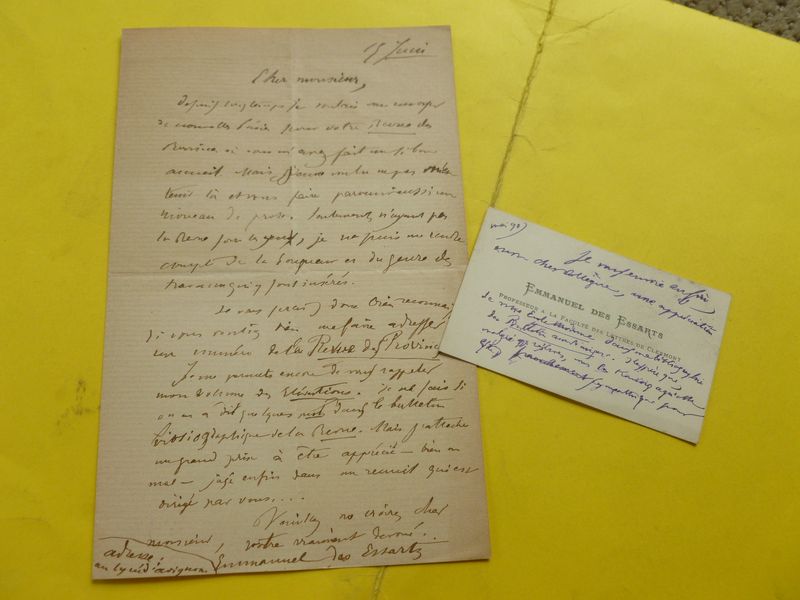 15 Juin
Cher monsieur,
depuis longtemps je voulais vous envoyer
de nouvelles Poésies pour votre Revue des
Provinces où vous m'avez fait un si bon
accueil. Mais j'aurais voulu ne pas
tenir là et vous faire parvenir aussi un
morceau de prose. Seulement, n'ayant pas
la Revue sous les yeux, je ne puis me rendre
compte de la longueur et du genre des
travaux qui y sont insérés.
Je vous serais donc bien reconnaissant
si vous vouliez bien me faire adresser
un numéro de la Revue des Provinces
Je me permets encore de vous rappeler
mon volume des Elévations. Je ne sais si
on en a dit quelques mots dans le bulletin
bibliographique de la Revue. Mais j'attache
un grand prix à être apprécié – bien ou
mal – jugé enfin dans un recueil qui est
dirigé par vous....
Veuillez me croire, cher
monsieur, votre vraiment dévoué..
Emmanuel des Essarts
adresse
au lycée d'avignon
mai 90
Je vous envoie enfin
mon cher collègue, une appréciation
EMMANUEL DES ESSARTS
PROFESSEUR A LA FACULTÉ DES LETTRES DE CLERMONT
de votre dans ma bibliographie
du Bulletin
malgré
franchement sympathique pour